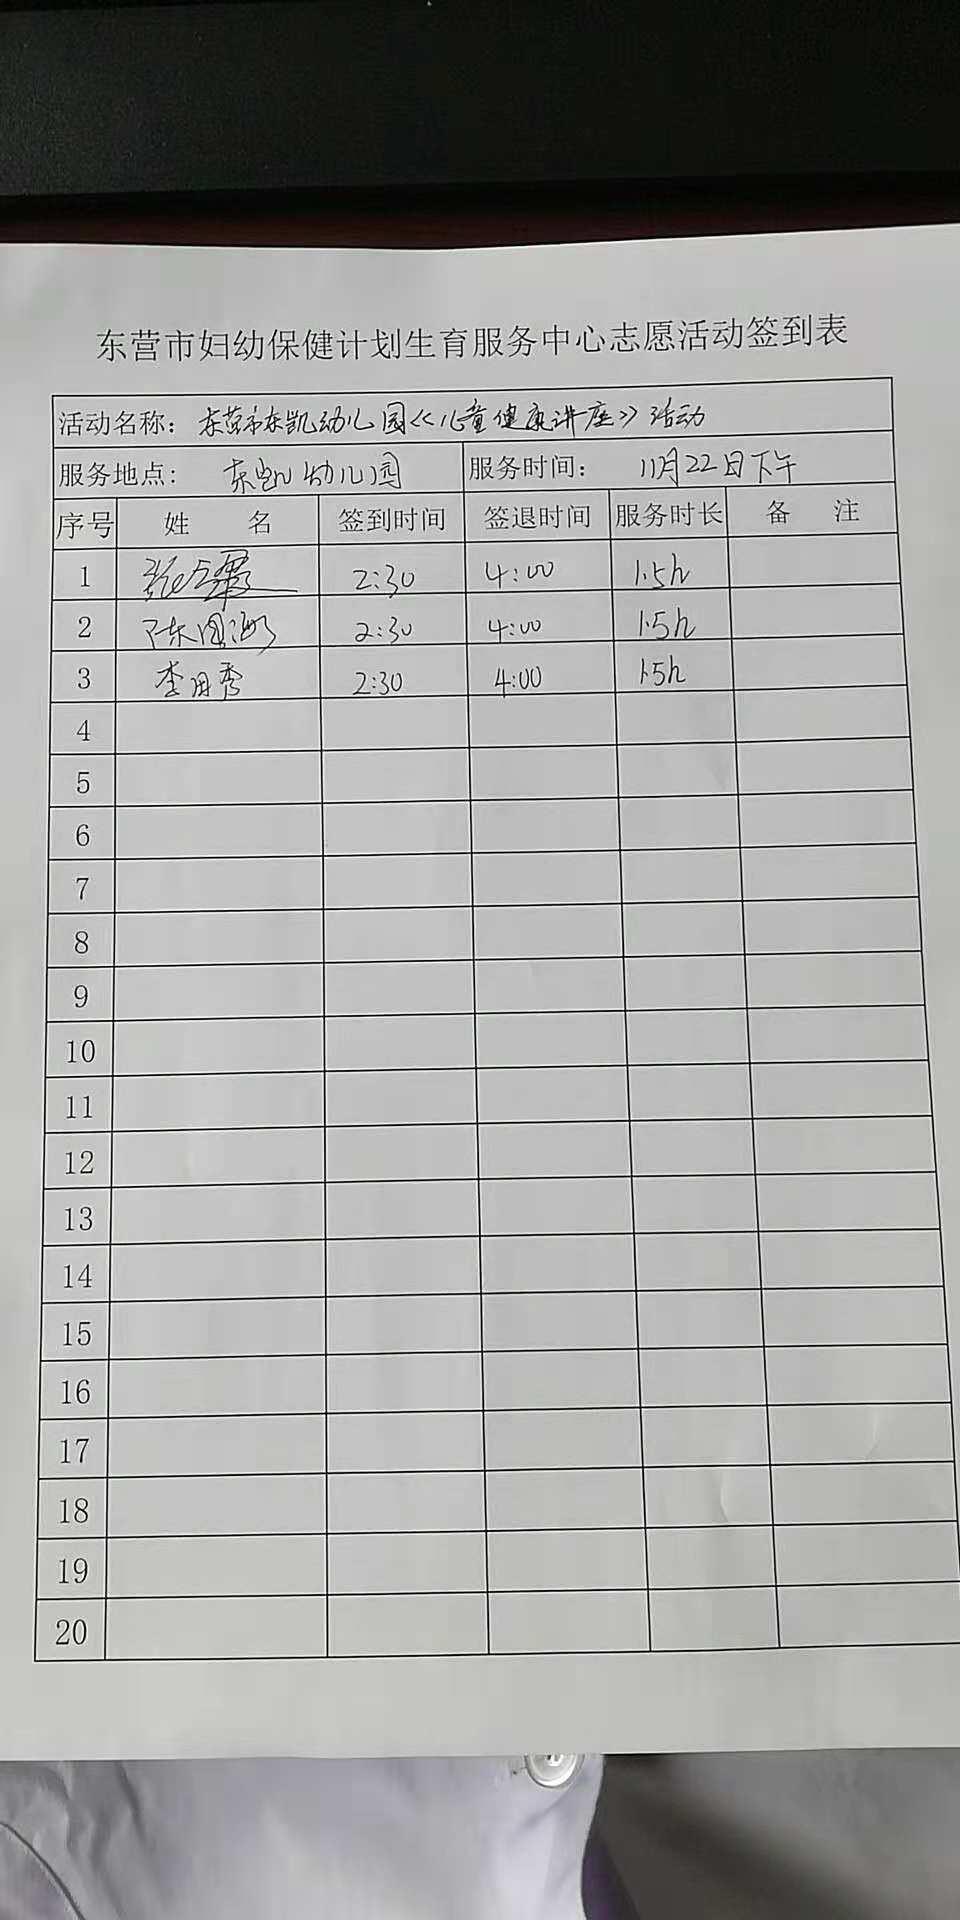 东营市妇幼保健计划生育服务中心志愿活动签到表
活动名称：东营市东凯幼儿园《儿童健康讲座》活动
服务地点：东凯幼儿园 服务时间：11月22日下午
序号 姓 名 签到时间 签退时间 服务时长 备 注
1 2:30 4:00 1.5h
2 陈国 2:30 4:00 1.5h
3 李用秀 2:30 4:00 1.5h
4
5
6
7
8
9
10
11
12
13
14
15
16
17
18
19
20